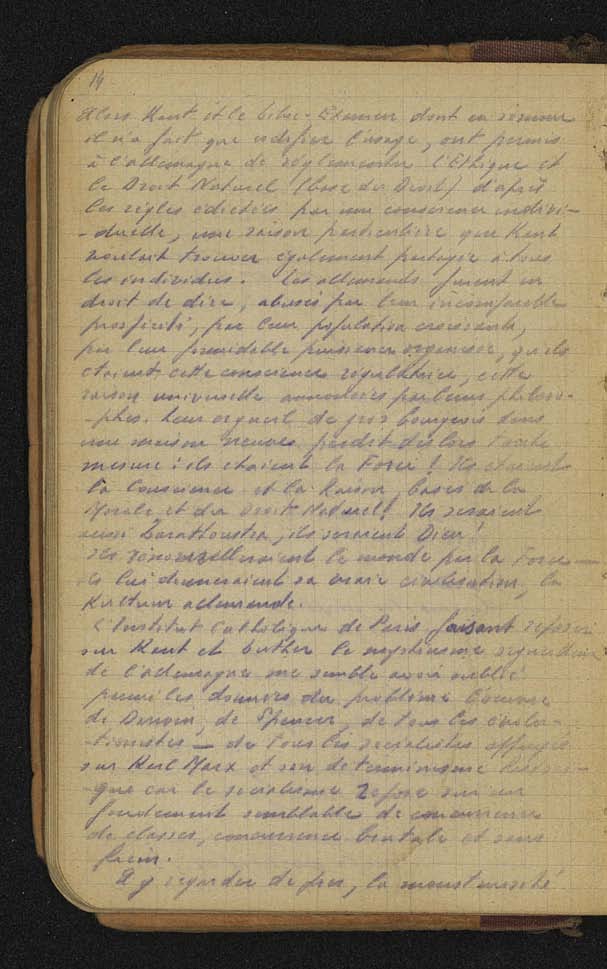 14
Alors Kant et le libre-Examen dont en somme
il n'a fait que codifier l'usage, ont permis
à l'allemagne de réglementer l'Ethique et
le Droit Naturel (base du Droit) d'après
les règles édictées par une conscience indivi-
-duelle, une raison particulière que Kant
voulait trouver également partagée à tous
les individus. Les allemands furent en
droit de dire, abusés par leur incomparable
prospérité, par leur population croissante,
par leur formidable puissance organisée, qu'ils
étaient cette conscience régulatrice, cette
raison universelle annoncées par leurs philoso-
-phes. Leur orgueil de gros bourgeois dans
une maison neuve perdit dès lors toute
mesure : ils étaient la Force ! Ils étaient
la Conscience et la Raison, bases de la
Morale et du Droit Naturel ! Ils seraient
aussi Zarathoustra, ils seraient Dieu !
Ils renouvelleraient le monde par la Force —
ils lui donneraient sa vraie civilisation, la
Kultur allemande.
L'Institut Catholique de Paris faisant reposer
sur Kant et Luther le mysticisme
de l'allemagne me semble avoir oublié
parmi les données du problème l'œuvre
de Darwin, de Spencer, de tous les évolu-
-tionnistes — de tous les socialistes appuyés
sur Karl Marx et son déterminisme
-que car le socialisme repose sur un
fondement semblable de concurrence
de classes, concurrence brutale et sans
frein.
A y regarder de près, la